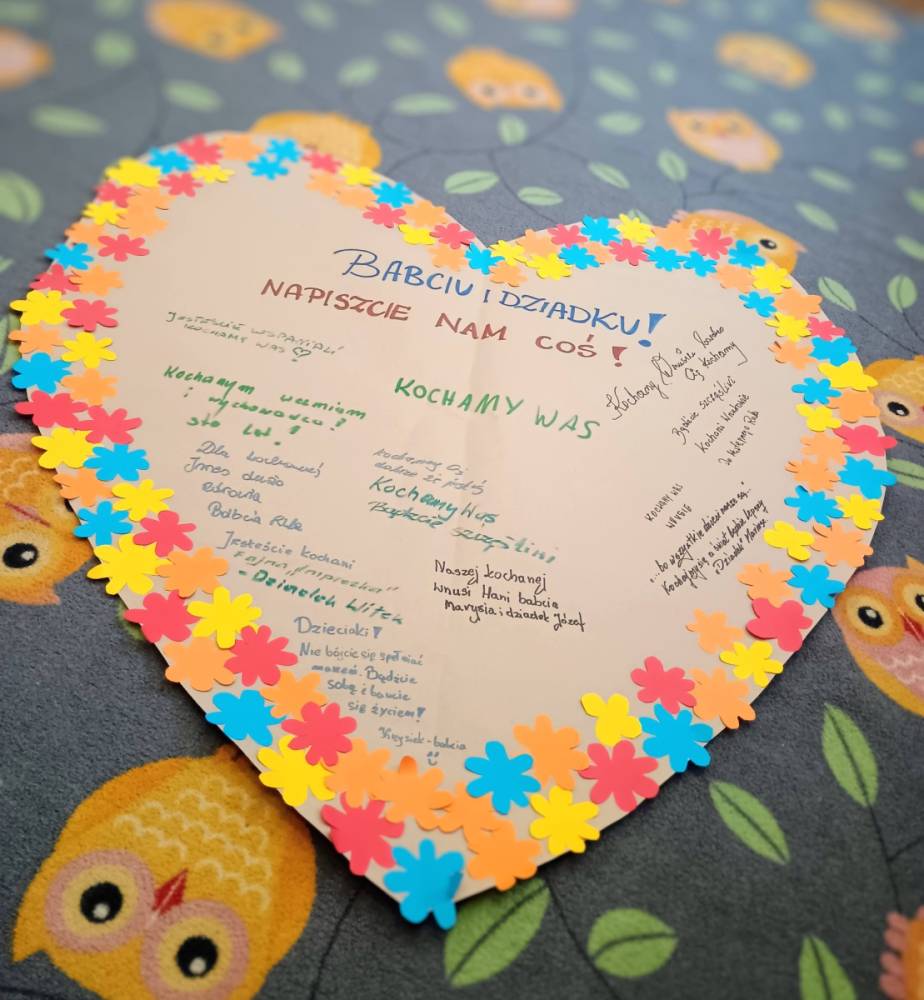 BABCIU I DZIADKU!
NAPISZCIE NAM COŚ!
JESTEŚCIE WSPANIALI
KOCHAMY WAS
Kochanym uczniom
i wychowawcy!
sto lat!
Dla kochanej
Ines dużo
zdrowia
Babcia Rela
Jesteście kochani
Fajna "imprezka"
- Dziadek Witek
Dzieciaki!
Nie bójcie się spełniać
marzeń. Bądźcie
sobą i bawcie
się życiem!
Krysiek-babcia
KOCHAMY WAS
Kochamy Cię
Kochamy Was
Bądźcie szczęśliwi
Naszej kochanej
wnusi Hani babcia
Marysia i dziadek Józef
Kochany bardzo
Cię Kochamy
Bądźcie szczęśliwi
Kochani
KOCHAMY WAS
"...bo wszystkie dzieci nasze są..."
Kochajmy się a świat będzie lepszy
"Dziadek" Mariusz